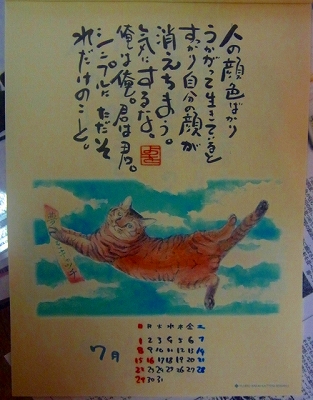 人の顔色ばかり
うかがって生きていると
すっかり自分の顔が
消えちまう。
気にするな、
俺は俺。君は君。
シンプルに ただそ
れだけのこと。
7月
日 月 火 水 木 金 土
1 2 3 4 5 6 7
8 9 10 11 12 13 14
15 16 17 18 19 20 21
22 23 24 25 26 27 28
29 30 31